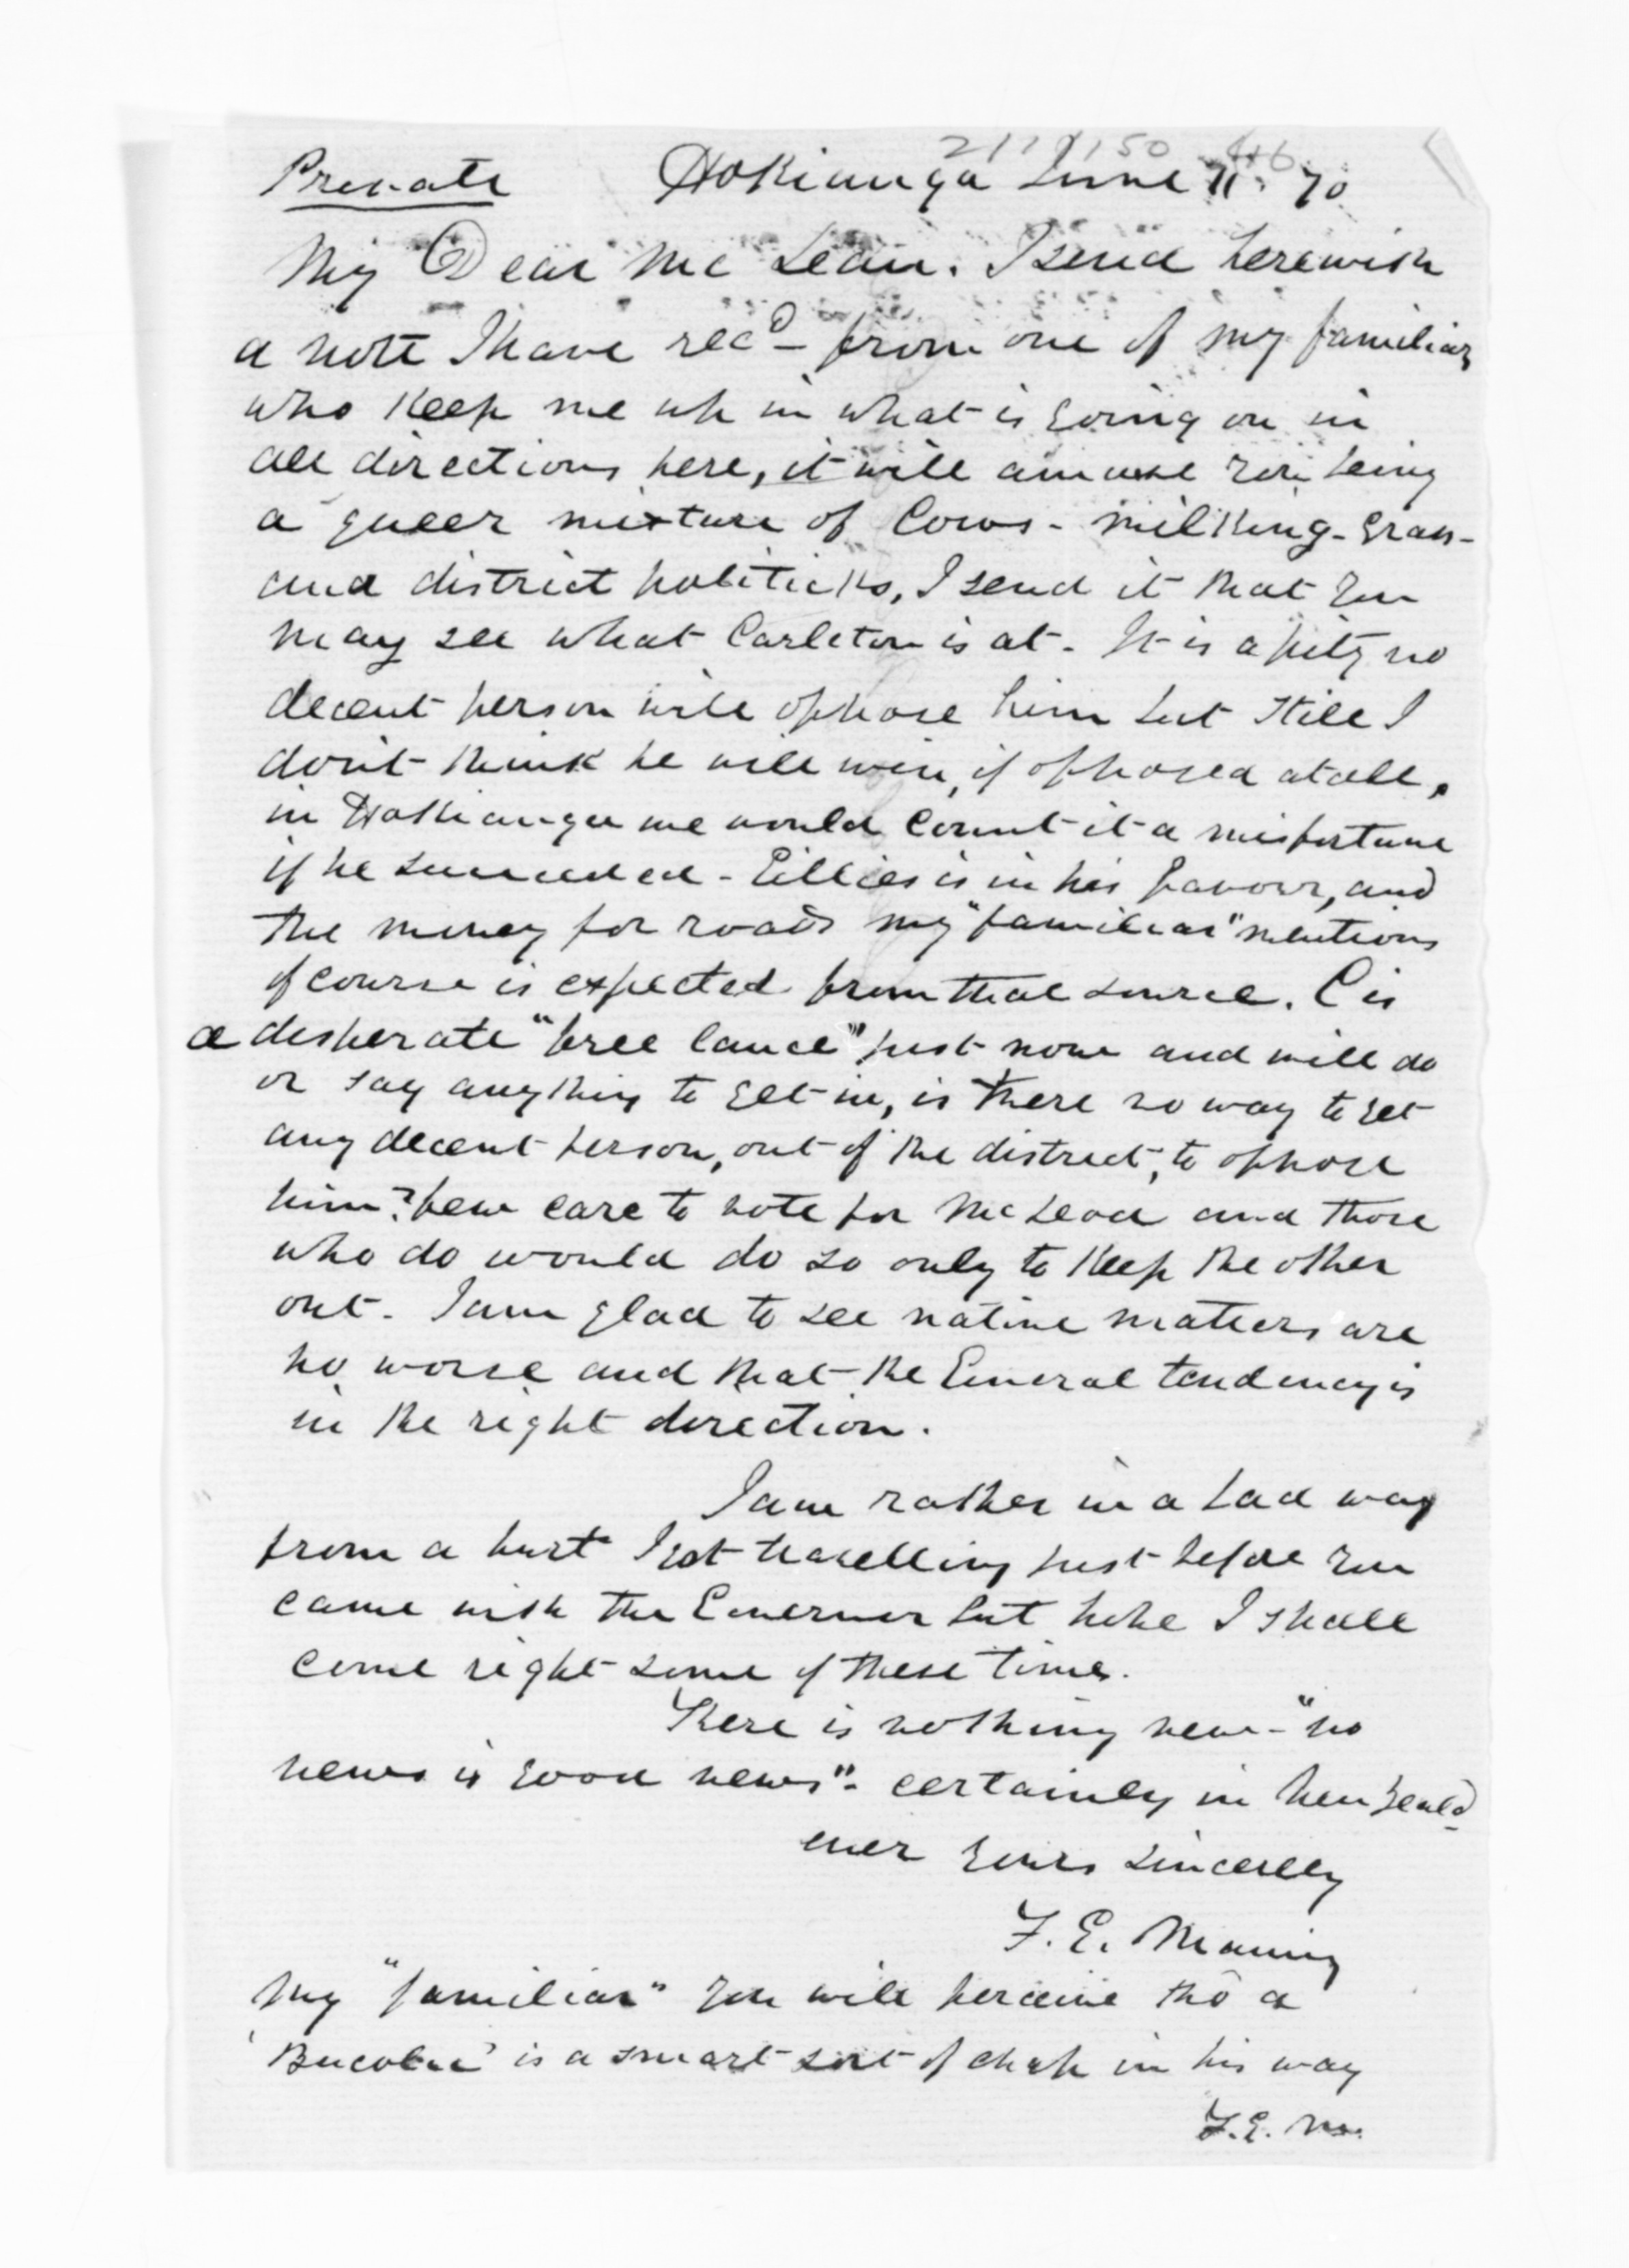 Private Hokianga June 11. 70
My Dear McLean. I send herewith
a note I have recd- from one of my familiars
who keep me up in what is going on in
all directions here, it will amuse you being
a queer mixture of Cows - milking - Grass -
and district politicks, I send it that you
may see what Carleton is at - It is a pity no
decent person will oppose him but still I
dont think he will win, if opposed at all,
in Hokianga we would count it a misfortune
if he succeeded - Gillies is in his favour, and
the money for roads my "familiar" mentions
of course is expected from that source. C is
a desperate "free lance" just now and will do
or say anything to get in, is there no way to get
any decent person, out of the district, to oppose
him? few care to vote for McLeod and those
who do would do so only to keep the other
out - I am glad to see native matters are
no worse and that the General tendency is
in the right direction.
I am rather in a bad way
from a hurt I got travelling just before you
came with the Governor but hope I shall
come right some of these times.
There is nothing new - "no
news is good news" - certainly in New Zeald
ever yours sincerely
F. E. Maning
My "familiar" you will perceive tho a
'Bucolic' is a smart sort of chap in his way
F. E. M.